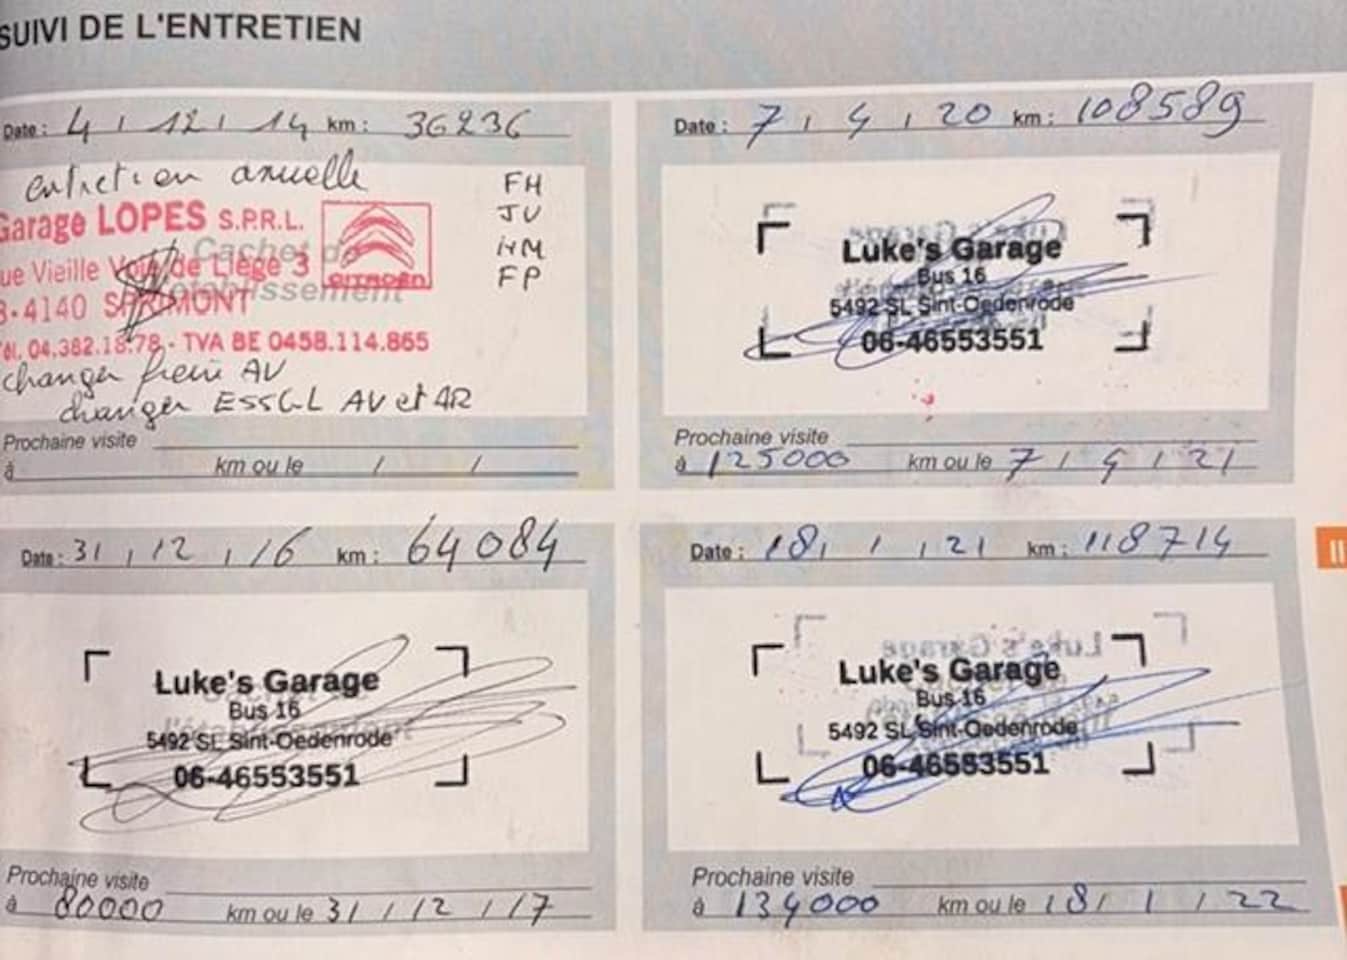 SUIVI DE L'ENTRETIEN
Date : 4 / 12 / 14 km : 36236
entretien anuelle
FH
JV
HM
FP
Garage LOPES S.P.R.L.
Cachet de
ue Vieille Voie de Liège 3
CITROËN
l'établissement
B-4140 SPRIMONT
él. 04.382.18.78 - TVA BE 0458.114.865
changer frein AV
changer ESSGL AV et AR
Prochaine visite
à km ou le / /
Date : 31 / 12 / 16 km : 64084
Luke's Garage
Bus 16
5492 SL Sint-Oedenrode
06-46553551
Prochaine visite
à 80000 km ou le 31 / 12 / 17
Date : 7 / 4 / 20 km : 108589
Luke's Garage
Bus 16
5492 SL Sint-Oedenrode
06-46553551
Prochaine visite
à 125000 km ou le 7 / 4 / 21
Date : 18 / 1 / 21 km : 118714
Luke's Garage
Bus 16
5492 SL Sint-Oedenrode
06-46553551
Prochaine visite
à 134000 km ou le 18 / 1 / 22
II